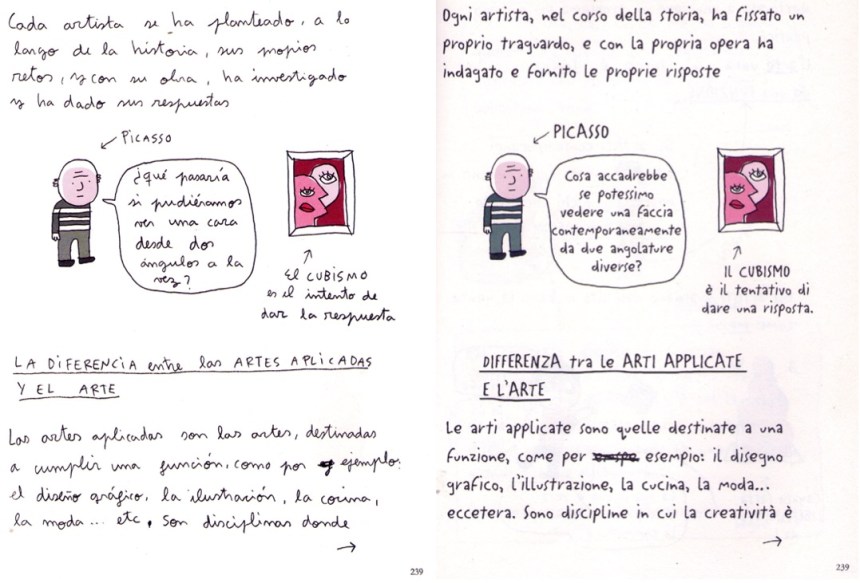 Cada artista se ha planteado, a lo
largo de la historia, sus propios
retos, y con su obra, ha investigado
y ha dado sus respuestas
PICASSO
¿qué pasaría
si pudiéramos
ver una cara
desde dos
ángulos a la
vez?
EL CUBISMO
es el intento de
dar la respuesta
LA DIFERENCIA entre las ARTES APLICADAS
Y EL ARTE
Las artes aplicadas son las artes, destinadas
a cumplir una función, como por ejemplo:
el diseño gráfico, la ilustración, la cocina,
la moda... etc. Son disciplinas donde
239
Ogni artista, nel corso della storia, ha fissato un
proprio traguardo, e con la propria opera ha
indagato e fornito le proprie risposte
PICASSO
Cosa accadrebbe
se potessimo
vedere una faccia
contemporaneamente
da due angolature
diverse?
IL CUBISMO
è il tentativo di
dare una risposta.
DIFFERENZA tra le ARTI APPLICATE
E L'ARTE
Le arti applicate sono quelle destinate a una
funzione, come per esempio: il disegno
grafico, l'illustrazione, la cucina, la moda...
eccetera. Sono discipline in cui la creatività è
239